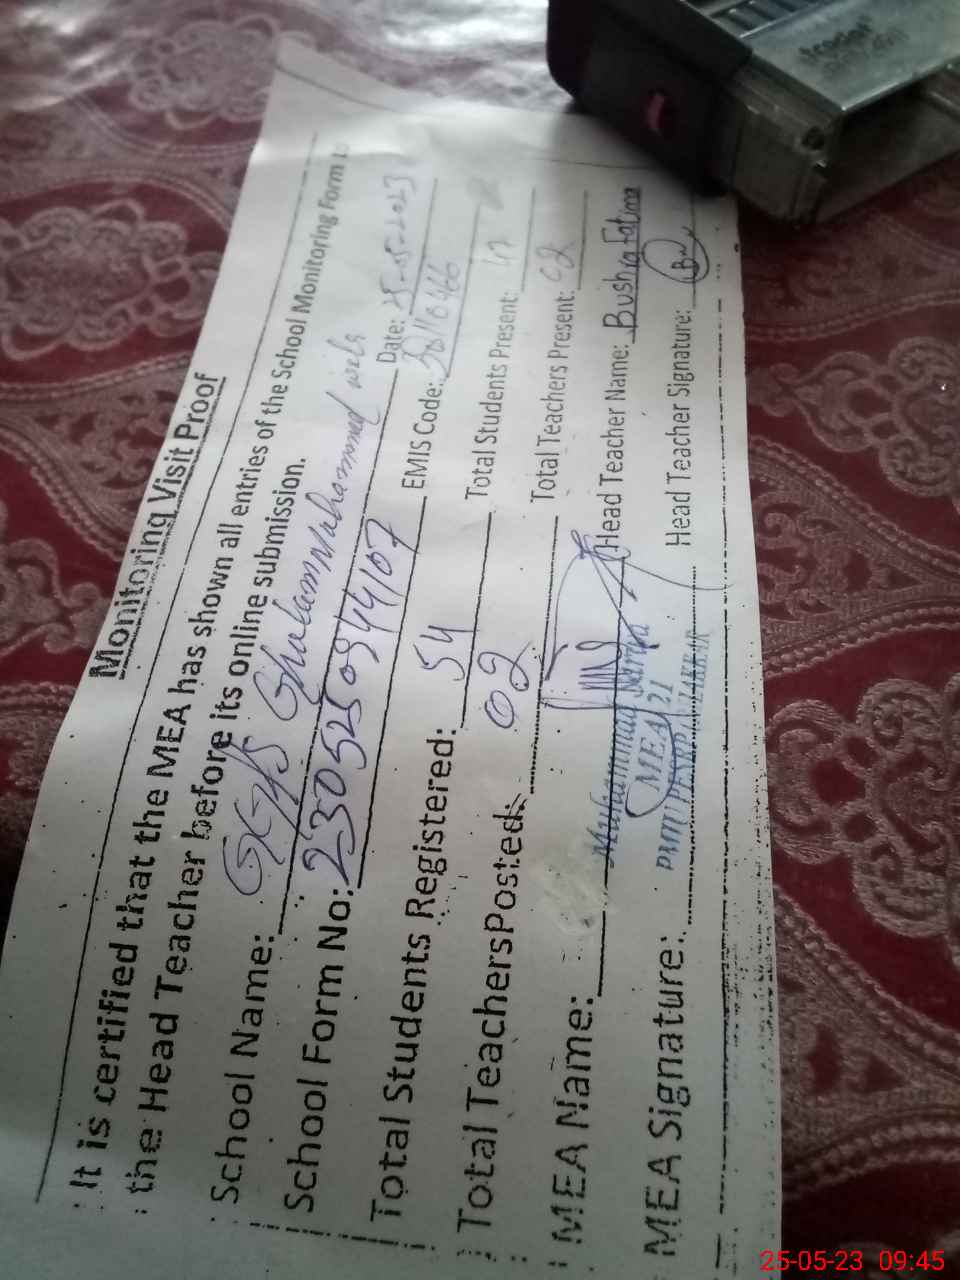 Monitoring Visit Proof
It is certified that the MEA has shown all entries of the School Monitoring Form to
the Head Teacher before its online submission.
School Name: GGPS Ghulam Muhammad Date: 25-5-2023
School Form No: 2305250944107 EMIS Code:
Total Students Registered: 54 Total Students Present: 47
Total TeachersPosted: 02 Total Teachers Present: 02
MEA Name: Muhammad Head Teacher Name: Bushra Fatima
MEA 21
MEA Signature: Head Teacher Signature: B
25-05-23 09:45